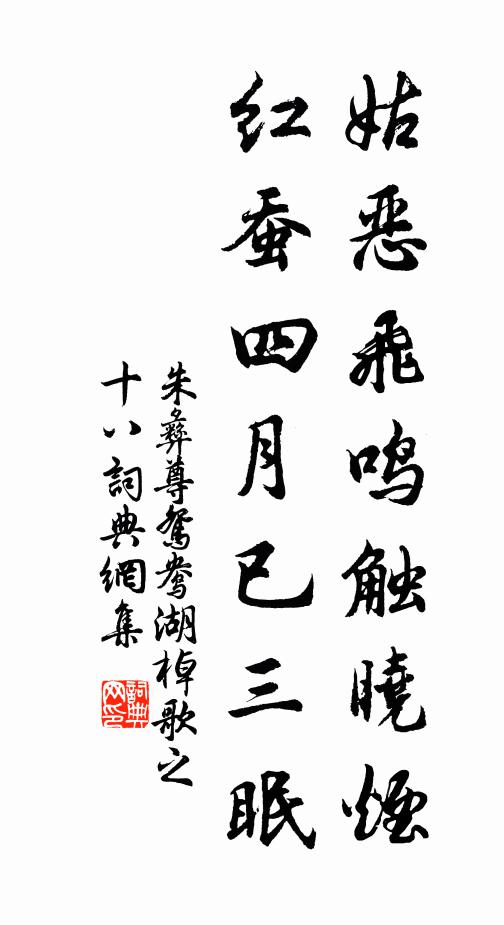 姑恶飛鸣触曉煙
红蚕四月已三眠
朱彝尊鴛鴦湖棹歌之
十八詞典網集
詞典
网印